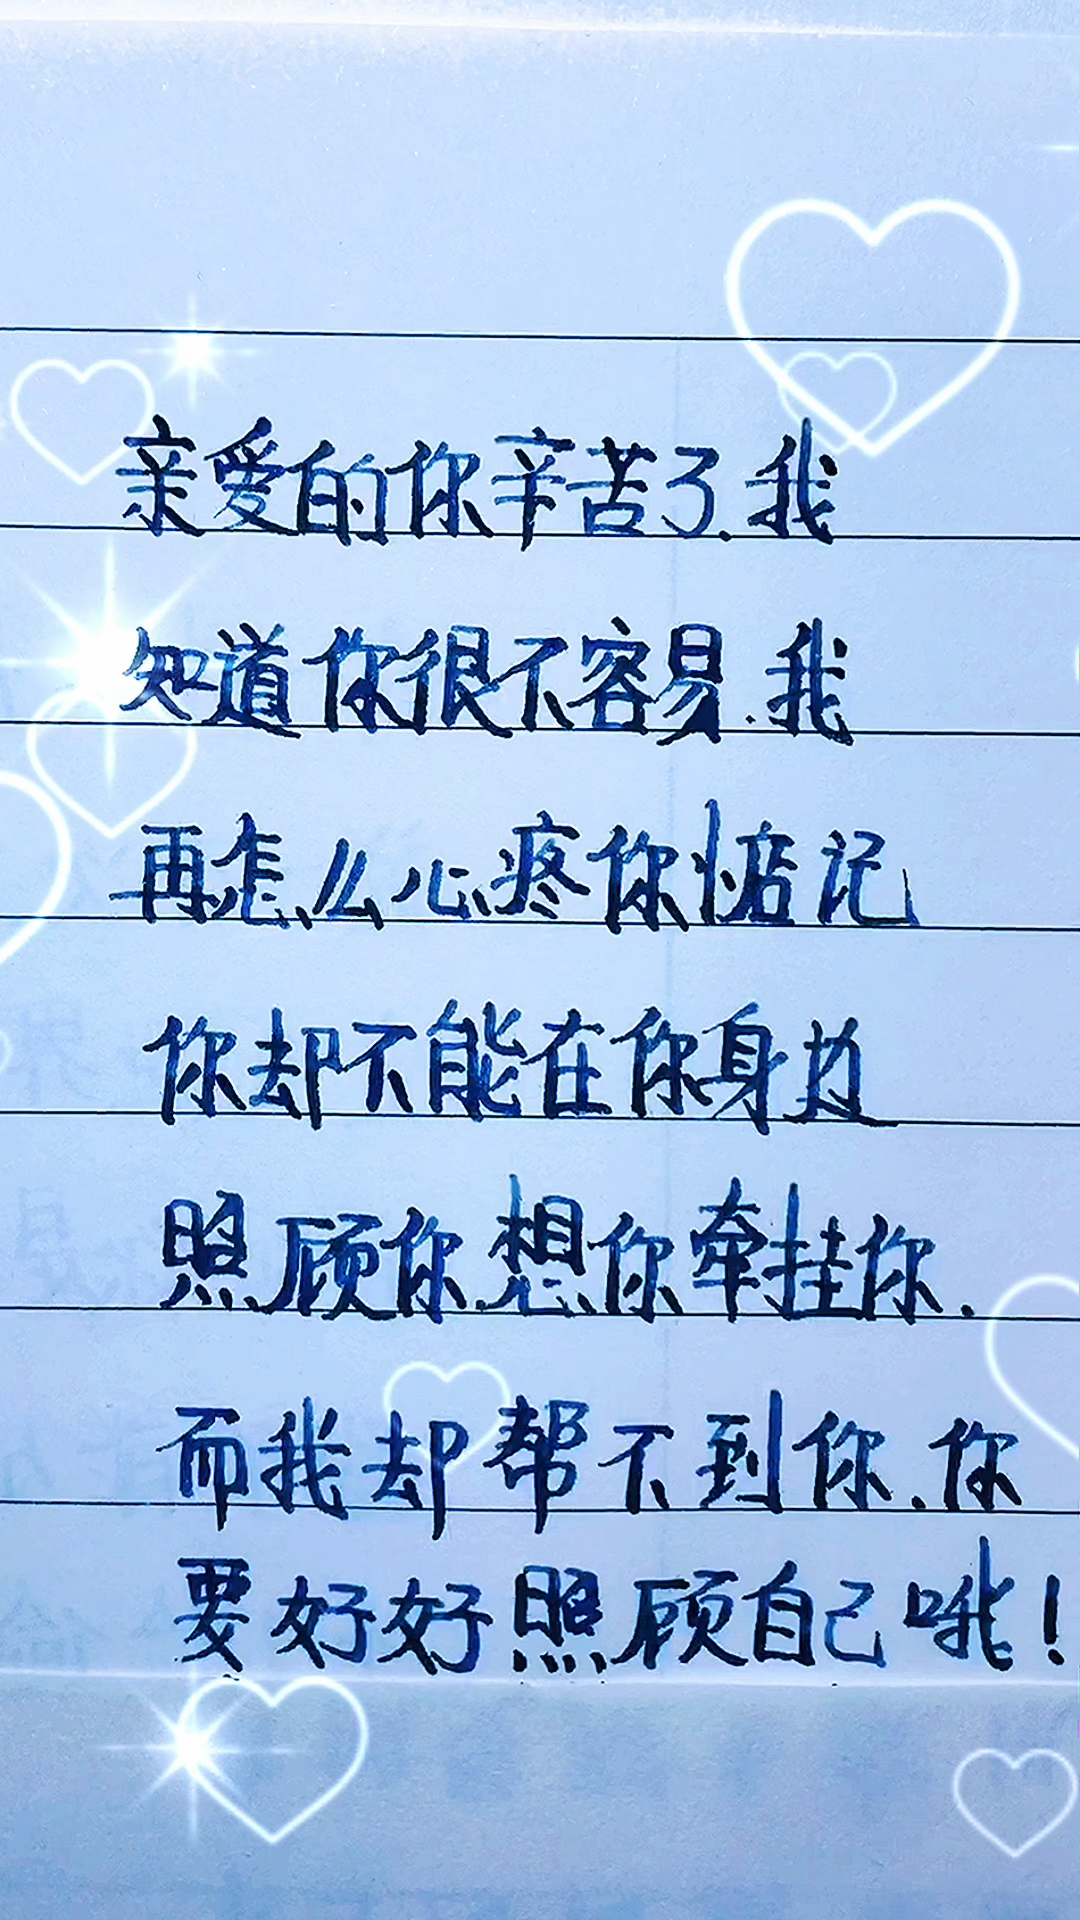 亲爱的你辛苦了.我
知道你很不容易.我
再怎么心疼你惦记
你却不能在你身边
照顾你想你牵挂你.
而我却帮不到你.你
要好好照顾自己哦!